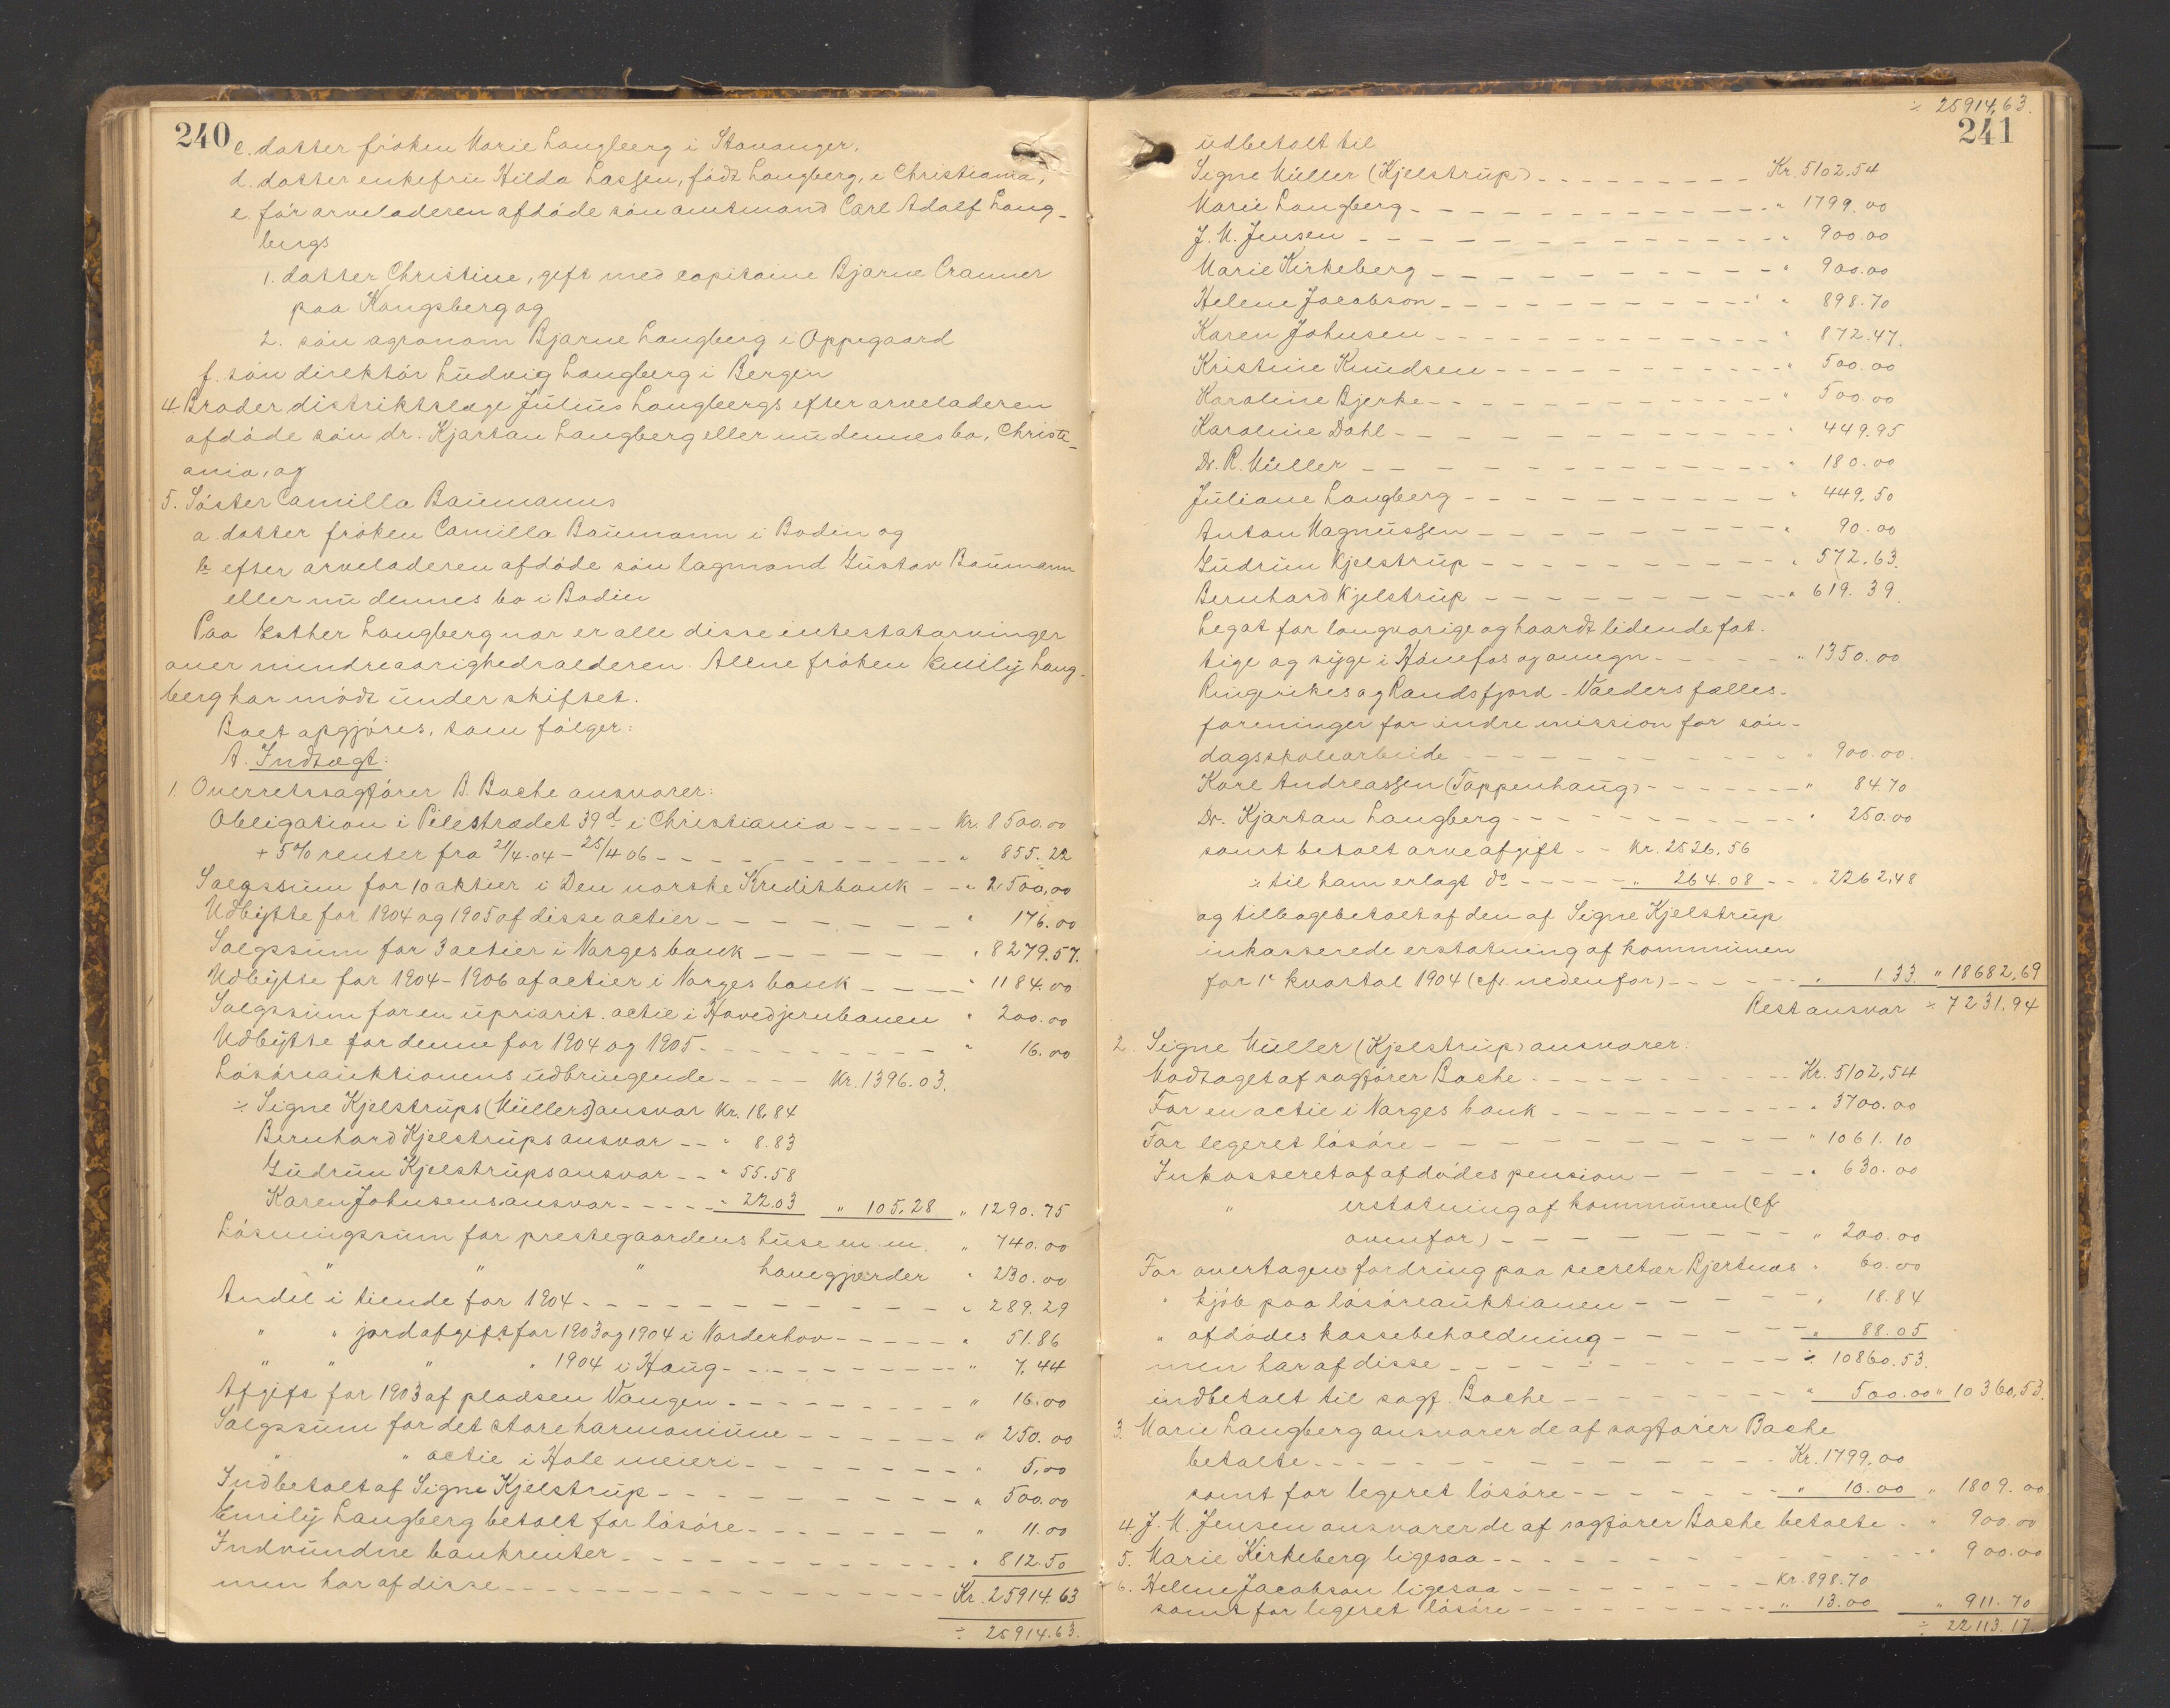 240
c. datter frøken Marie Langberg i Stavanger,
d. datter enkefru Hilda Lassen, født Langberg, i Christiania,
e. før arveladeren afdøde søn amtmand Carl Adolf Lang-
bergs
1. datter Christine, gift med capitaine Bjarne Cranner
paa Kongsberg og
2. søn agronom Bjarne Langberg i Oppegaard
f. søn direktør Ludvig Langberg i Bergen
4. Broder distriktslæge Julius Langbergs efter arveladeren
afdøde søn dr. Kjartan Langberg eller nu dennes bo, Christi-
ania, og
5. Søster Camilla Baumanns
a. datter frøken Camilla Baumann i Bodin og
b. efter arveladeren afdøde søn lagmand Gustav Baumann
eller nu dennes bo i Bodin
Paa Esther Langberg nær er alle disse intestatarvinger
over mindreaarighedsalderen. Alene frøken Emily Lang-
berg har mødt under skiftet.
Boet opgjøres, som følger:
A. Indtægt:
1. Overretssagfører B. Bache ansvarer:
Obligation i Pilestrædet 39d i Christiania - - - - - Kr. 8500.00
+ 5% renter fra 21/4.04 - 25/4 06 - - - - - - - - - - - " 855.22
Salgssum for 10 aktier i Den norske Kreditbank - - " 2500,00
Udbytte for 1904 og 1905 af disse actier - - - - - - - " 176.00
Salgssum for 3 actier i Norges bank - - - - - - " 8279.57.
Udbytte for 1904-1906 af actier i Norges bank - - - - " 1184.00
Salgssum for en upriorit. actie i Hovedjernbanen " 200.00
Udbytte for denne for 1904 og 1905 - - - - - - - - " 16.00
Løsøreauktionens udbringende - - - - Kr. 1396.03.
÷ Signe Kjelstrups (Müllers) ansvar Kr. 18.84
Bernhard Kjelstrups ansvar - - " 8.83
Gudrun Kjelstrups ansvar - - " 55.58
Karen Johnsens ansvar - - - - - " 22.03 " 105.28 " 1290.75
Løsningssum for prestegaardens huse m. m. " 740.00
" " " havegjærder " 230.00
Andel i tiende for 1904 - - - - - - - - - - - - " 289.29
" " jordafgift for 1903 og 1904 i Norderhov - - - - - " 51.86
" " " " 1904 i Haug - - - - - - - - - " 7,44
Afgift for 1903 af pladsen Vangen - - - - - - - - - " 16.00
Salgssum for det store harmonium - - - - - - - " 250.00
" " actie i Hole meieri - - - - - - - - " 5,00
Indbetalt af Signe Kjelstrup - - - - - - - - - - " 500.00
Emily Langberg betalt for løsøre - - - - - - - " 11.00
Indvundne bankrenter - - - - - - - - - - - " 812.50
men har af disse - - - - - - - - - - - - - - Kr. 25914.63
÷ 25914.63.
÷ 25914,63.
241
udbetalt til
Signe Müller (Kjelstrup) - - - - - - - - - Kr. 5102.54
Marie Langberg - - - - - - - - - - - - - " 1799.00
J. M. Jensen - - - - - - - - - - - - - - " 900.00
Marie Kirkeberg - - - - - - - - - - - - " 900.00
Helene Jacobson - - - - - - - - - - - - " 898.70
Karen Johnsen - - - - - - - - - - - - - " 872.47.
Kristine Knudsen - - - - - - - - - - - " 500.00
Karoline Bjerke - - - - - - - - - - - - " 500.00
Karoline Dahl - - - - - - - - - - - - - " 449.95
Dr. R. Müller - - - - - - - - - - - - - " 180.00
Juliane Langberg - - - - - - - - - - - " 449.50
Anton Magnussen - - - - - - - - - - " 90.00
Gudrun Kjelstrup - - - - - - - - - - " 572.63.
Bernhard Kjelstrup - - - - - - - - - - " 619.39.
Legat for langvarige og haardt lidende fat-
tige og syge i Hønefos og omegn - - - - - " 1350.00
Ringerikes og Randsfjord-Valders fælles-
foreninger for indre mission for søn-
dagsskolearbeide - - - - - - - - - - - - " 900.00.
Kare Andreassen (Tappenhaug) - - - - - - - " 84.70
Dr. Kjartan Langberg - - - - - - - - - - " 250.00
samt betalt arveafgift - - Kr. 2526.56
÷ til ham erlagt do - - - - - " 264.08 - - " 2262,48
og tilbagebetalt af den af Signe Kjelstrup
inkasserede erstatning af kommunen
for 1' kvartal 1904 (cfr. nedenfor) - - - - - - - " 1.33 " 18682,69
Restansvar ÷ 7231,94
2. Signe Müller (Kjelstrup) ansvarer:
Modtaget af sagfører Bache - - - - - - - - - - Kr. 5102,54
For en actie i Norges bank - - - - - - - - - - " 3700.00
For legeret løsøre - - - - - - - - - - - - " 1061.10
Inkasseret af afdødes pension - - - - - - - " 630.00
" erstatning af kommunen (cf
ovenfor) - - - - - - - - - " 200.00
For overtagen fordring paa secretær Bjertnæs " 60.00
" kjøb paa løsøreauktionen - - - - - - " 18.84
" afdødes kassebeholdning - - - - - - - " 88.05
men har af disse - - - - - - - - - - - - - ÷ 10860.53.
indbetalt til sagf. Bache - - - - - - - - " 500.00 " 10360,53.
3. Marie Langberg ansvarer de af sagfører Bache
betalte - - - - - - - - - - - - - - Kr. 1799.00
samt for legeret løsøre - - - - - - - - " 10.00 " 1809.00
4. J. M. Jensen ansvarer de af sagfører Bache betalte - " 900.00
5. Marie Kirkeberg ligesaa - - - - - - - - - - - - - - - " 900.00
6. Helene Jacobson ligesaa - - - - - - - - - Kr. 898.70
samt for legeret løsøre - - - - - - - - - " 13.00 " 911.70
÷ 22113.17.